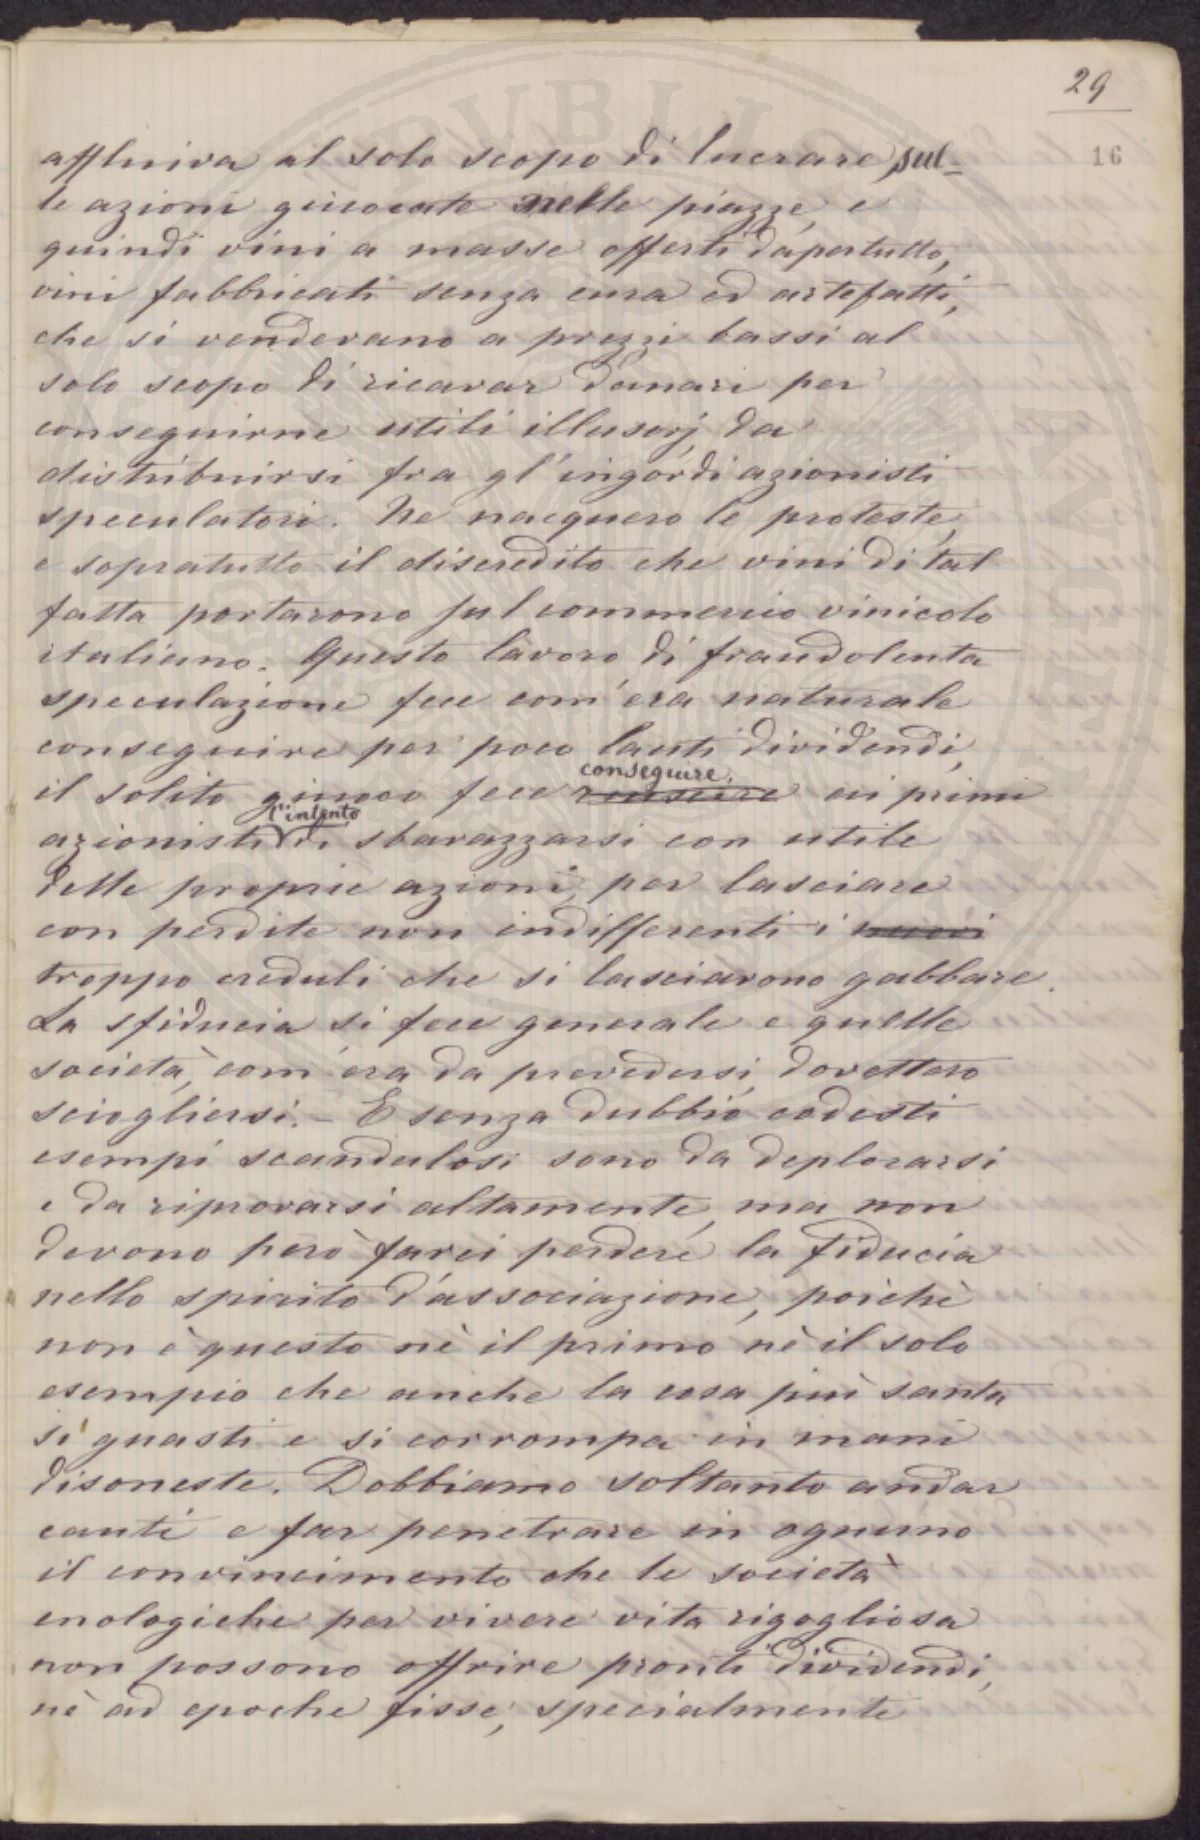 29
16
affluiva al solo scopo di lucrare sul-
le azioni giuocate nelle piazze, e
quindi vini a masse offerti dapertutto,
vini fabbricati senza cura ed artefatti,
che si vendevano a prezzi bassi al
solo scopo di ricavar danari per
conseguirne utili illusorj, da
distribuirsi fra gl'ingordi azionisti
speculatori. Ne nacquero le proteste,
e sopratutto il discredito che vini di tal
fatta portarono sul commercio vinicolo
italiano. Questo lavoro di fraudolenta
speculazione fece com'era naturale
conseguire per poco lauti dividendi,
conseguire
il solito giuoco fece riuscire ai primi
l'intento
azionisti di sbarazzarsi con utile
delle proprie azioni, per lasciare
con perdite non indifferenti i nuovi
troppo creduli che si lasciarono gabbare.
La sfiducia si fece generale e quelle
società, com'era da prevedersi, dovettero
sciogliersi. - E senza dubbio codesti
esempi scandalosi sono da deplorarsi
e da riprovarsi altamente, ma non
devono però farci perdere la fiducia
nello spirito d'associazione, poichè
non è questo nè il primo nè il solo
esempio che anche la cosa più santa
si guasti e si corrompa in mani
disoneste. Dobbiamo soltanto andar
cauti e far penetrare in ognuno
il convincimento che le società
enologiche per vivere vita rigogliosa
non possono offrire pronti dividendi,
nè ad epoche fisse, specialmente